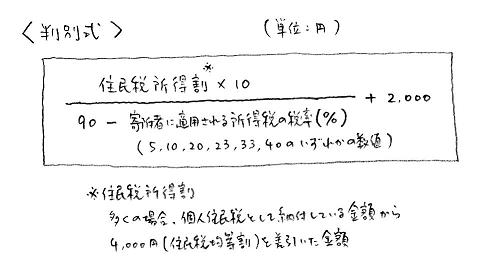 〈判別式〉 (単位:円)
住民税所得割※×10
90 − 寄附者に適用される所得税の税率(%) + 2,000
(5,10,20,23,33,40のいずれかの数値)
※住民税所得割
多くの場合、個人住民税として納付している金額から
4,000円(住民税均等割)を差引いた金額